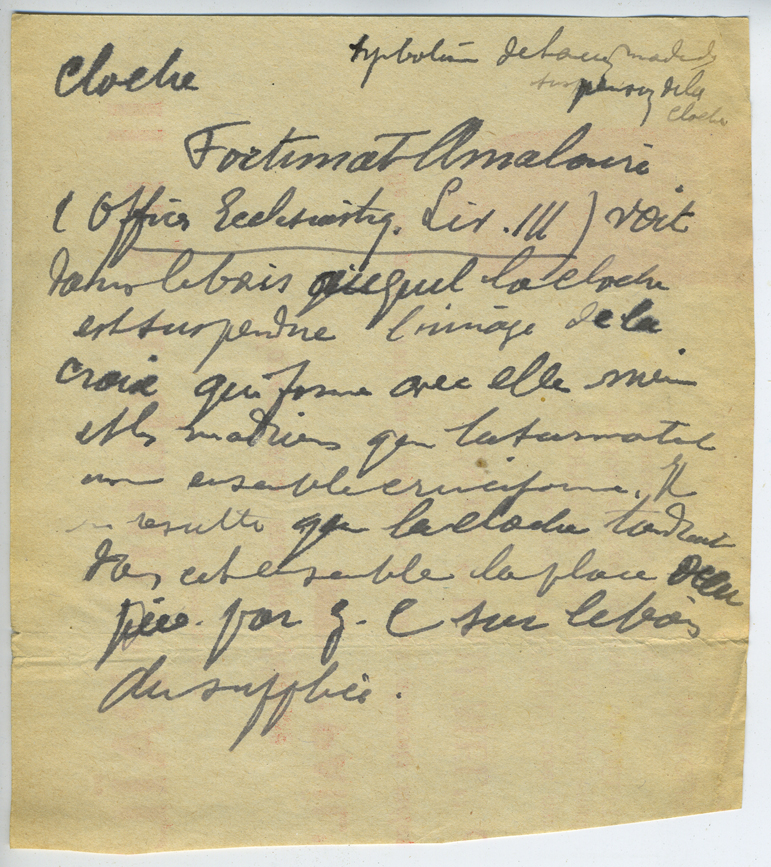 Cloche
de la
cloche
Fortunat Amalaire
(Offices Ecclesiastiq. Liv. III) voit
dans le bois auquel la cloche
est suspendue l'image de la
croix qui forme avec elle
et les madriers que la surmontent
un ensemble cruciforme. Il
en resulte que la cloche tiendrait
dans cet ensemble la place occu
pée par J. C sur le bois
du supplice.